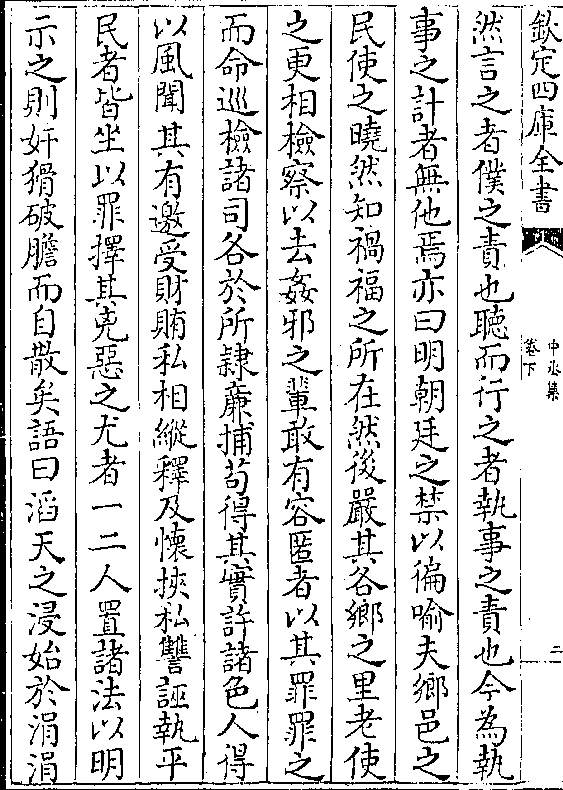 欽定四庫全書
中丞集
卷下
二
然言之者僕之責也聽而行之者執事之責也今為執
事之計者無他焉亦曰明朝廷之禁以徧喻夫鄉邑之
民使之曉然知禍福之所在然後嚴其各鄉之里老使
之更相檢察以去姦邪之輩敢有容匿者以其罪罪之
而命巡檢諸司各於所隷亷捕苟得其實許諸色人得
以風聞其有邀受財賄私相縱釋及懷挾私讐誣執平
民者皆坐以罪擇其兇惡之尤者一二人置諸法以明
示之則奸猾破膽而自散矣語曰滔天之浸始於涓涓